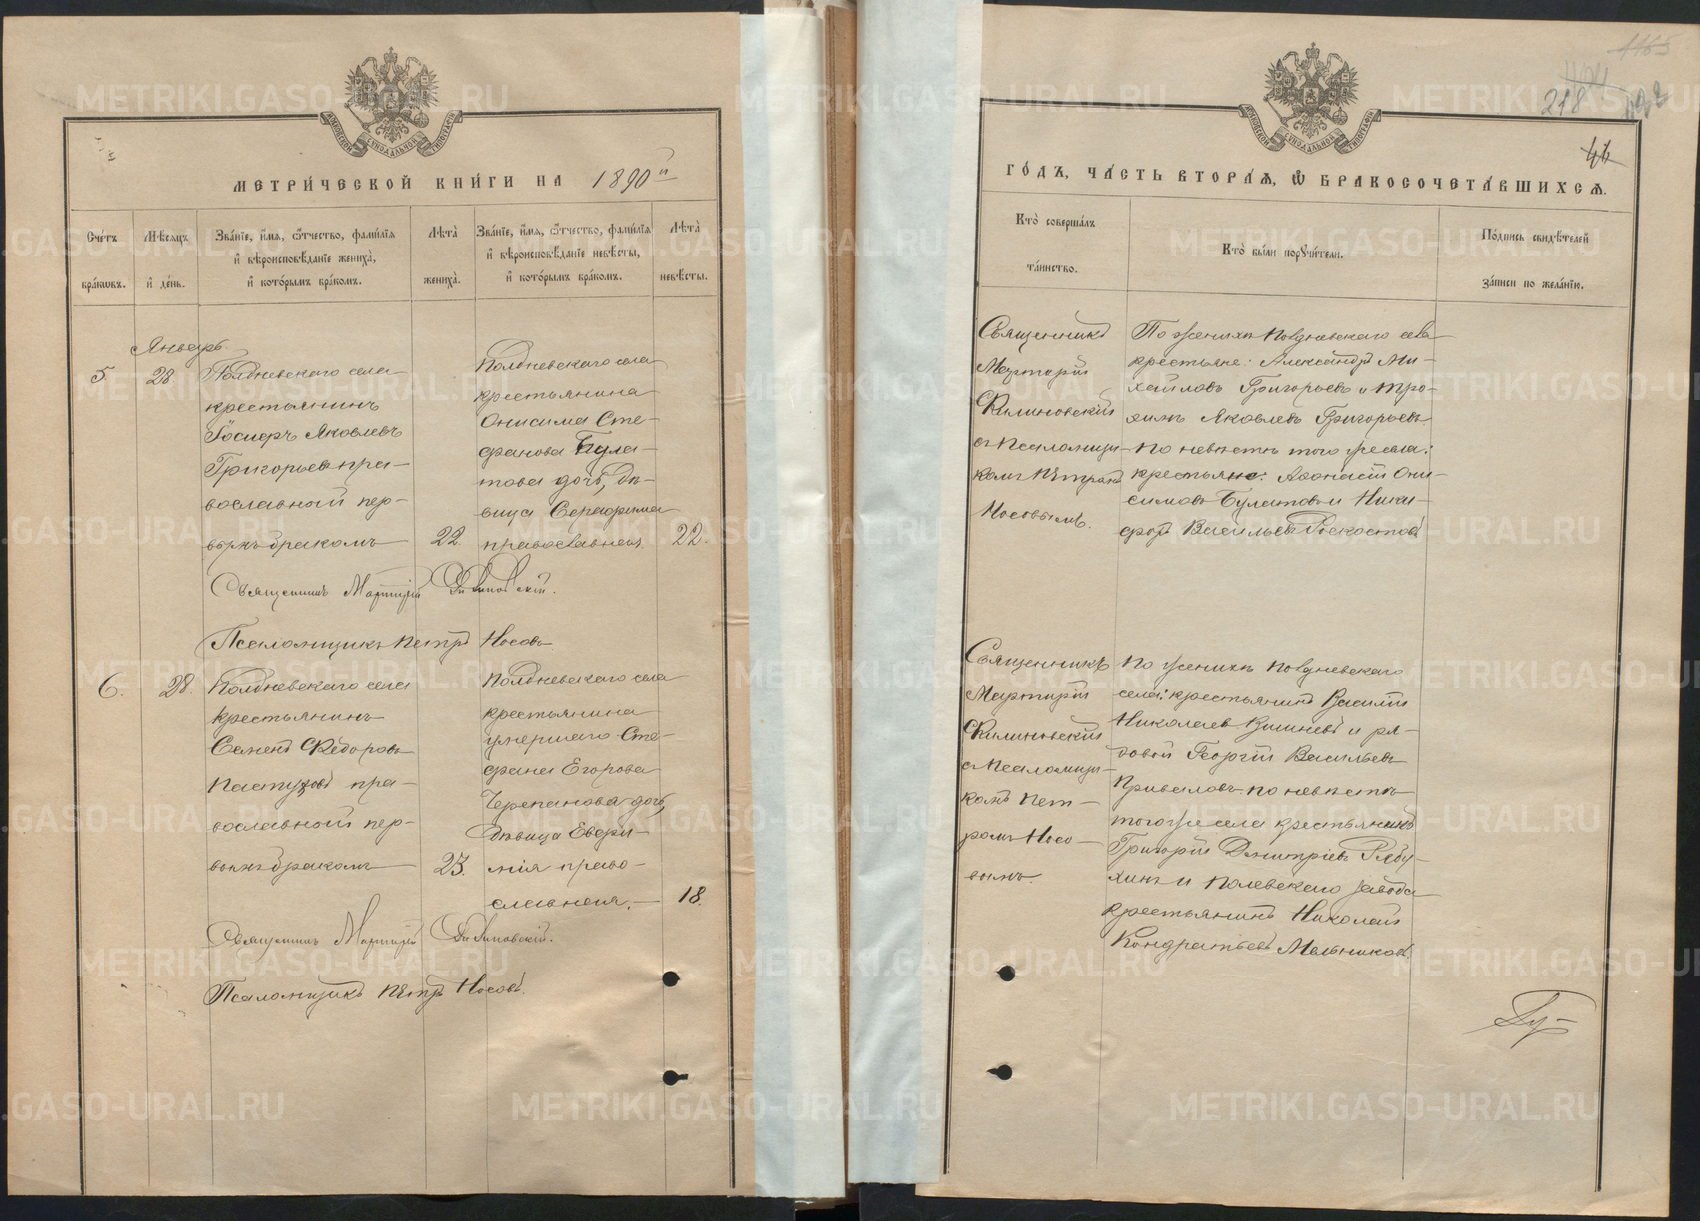 МЕТРИ́ЧЕСКОЙ КНИ́ГИ НА 1890й
Сче́тъ бра́ковъ.
Мѣ́сяцъ и҆ де́нь.
Зва́нїе, и҆́мя, ѻ҆́тчество, фами́лїя и҆ вѣроисповѣ́данїе жениха̀, и҆ кото́рымъ бра́комъ.
Лѣта̀ жениха̀.
Зва́нїе, и҆́мя, ѻ҆́тчество, фами́лїя и҆ вѣроисповѣ́данїе невѣ́сты, и҆ кото́рымъ бра́комъ.
Лѣта̀ невѣ́сты.
Январь
5.
28
Полдневскаго села
крестьянинъ
Яковлевъ
Григорьевъ пра-
вославный пер-
вымъ бракомъ
22.
Полдневскаго села
крестьянина
Онисима Сте-
фанова Була-
това дочь, дѣ-
вица Серафима
православная.
22.
Священникъ Мартирій Филиновскій.
Псаломщикъ Петръ Носовъ
6.
28.
Полдневскаго села
крестьянинъ
Семенъ Ѳедоровъ
Пастуховъ пра-
вославный пер-
вымъ бракомъ
23.
Полдневскаго села
крестьянина
умершаго Сте-
фана Егорова
Черепанова дочь,
дѣвица Евфи-
мія право-
славная.
18.
Священникъ Мартирій Филиновскій.
Псаломщикъ Петръ Носовъ.
218
46
ГО́ДЪ, ЧА́СТЬ ВТОРА́Я, Ѡ҆ БРАКОСОЧЕТА́ВШИХСЯ.
Кто̀ соверша́лъ та́инство.
Кто̀ бы́ли порꙋчи́тели.
По́дпись свидѣ́телей за́писи по жела́нїю.
Священникъ
Мартирій
Филиновскій
съ Псаломщи-
комъ Петромъ
Носовымъ.
По женихѣ Полдневскаго села
крестьяне: Александръ Ми-
хайловъ Григорьевъ и Тро-
фимъ Яковлевъ Григорьевъ
по невѣстѣ того же села:
крестьяне: Афанасій Они-
симовъ Булатовъ и Ники-
форъ Васильевъ
Священникъ
Мартирій
Филиновскій
съ Псаломщи-
комъ Пет-
ромъ Носо-
вымъ.
По женихѣ Полдневскаго
села: крестьянинъ Василій
Николаевъ и ря-
довой Георгій Васильевъ
Приваловъ. по невѣстѣ
того же села крестьянинъ
Григорій Дмитріевъ Рябу-
хинъ и Полевскаго завода
крестьянинъ Николай
Кондратьевъ Мельниковъ.
METRIKI.GASO-URAL.RU